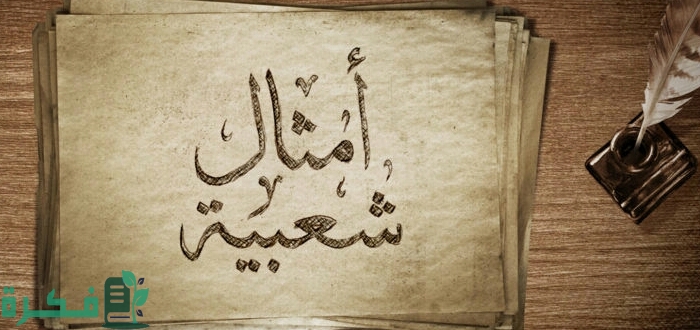 أمثال
شعبية
فكرة